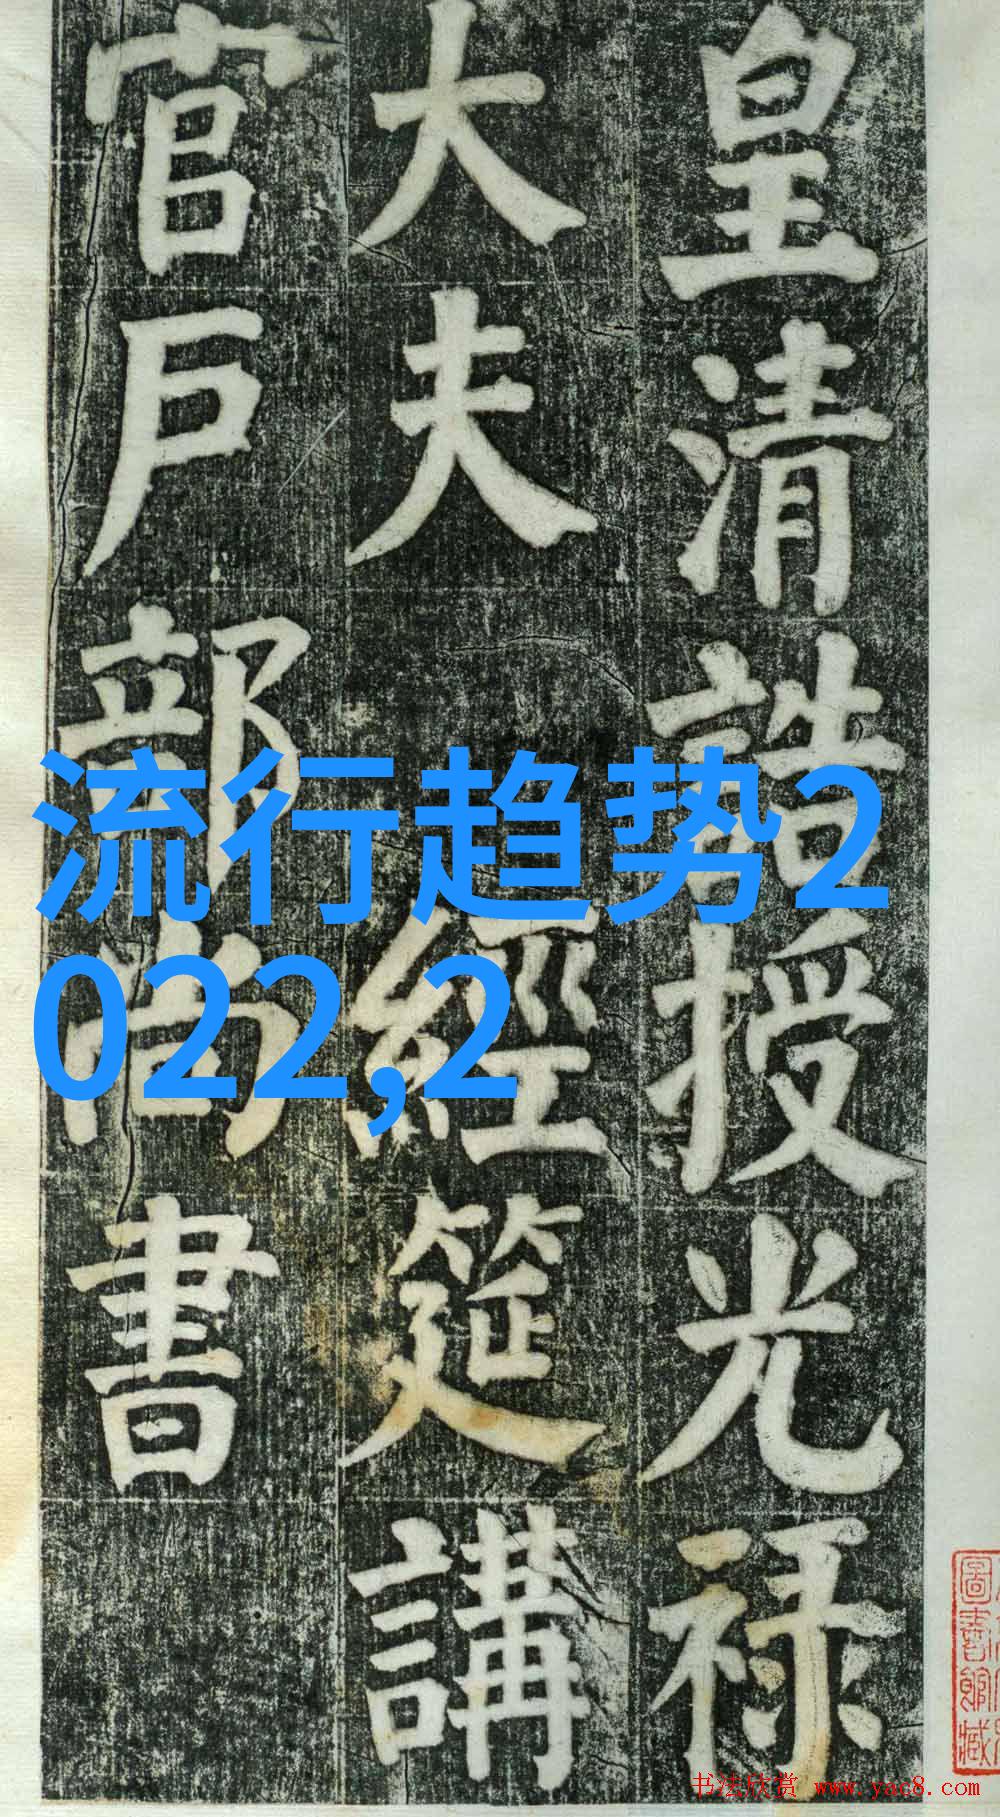 皇清誥授光祿
大夫 經筵講
官戶部尚書
流行趋势2
022,2
圖書館藏
书法欣赏 www.yac8.com